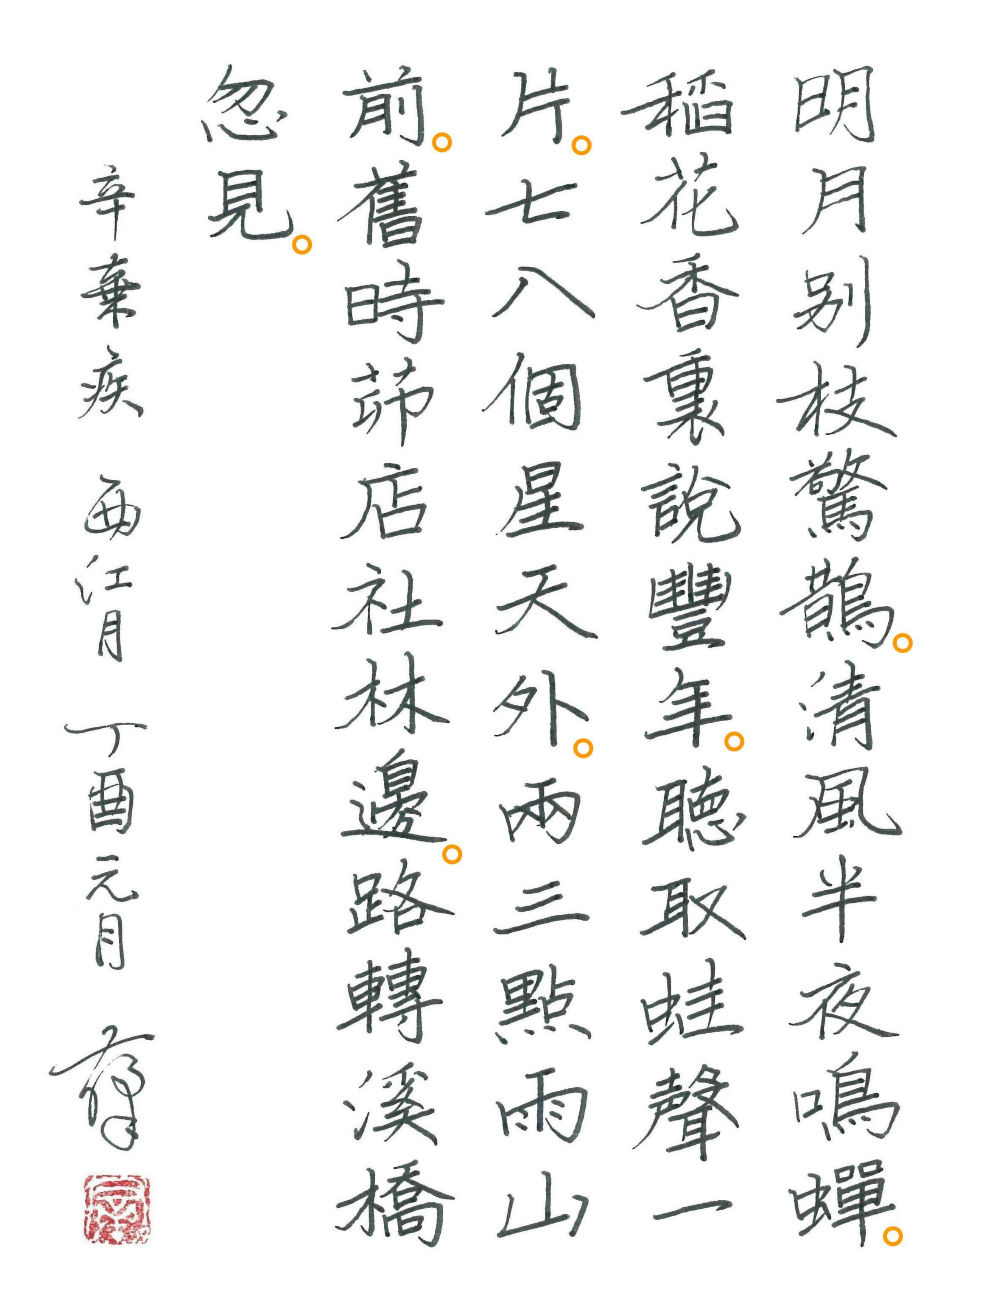 明月别枝驚鵲。清風半夜鳴蟬。
稻花香裏說豐年。聽取蛙聲一
片。七八個星天外。兩三點雨山
前。舊時茆店社林邊。路轉溪橋
忽見。
辛棄疾 西江月 丁酉元月